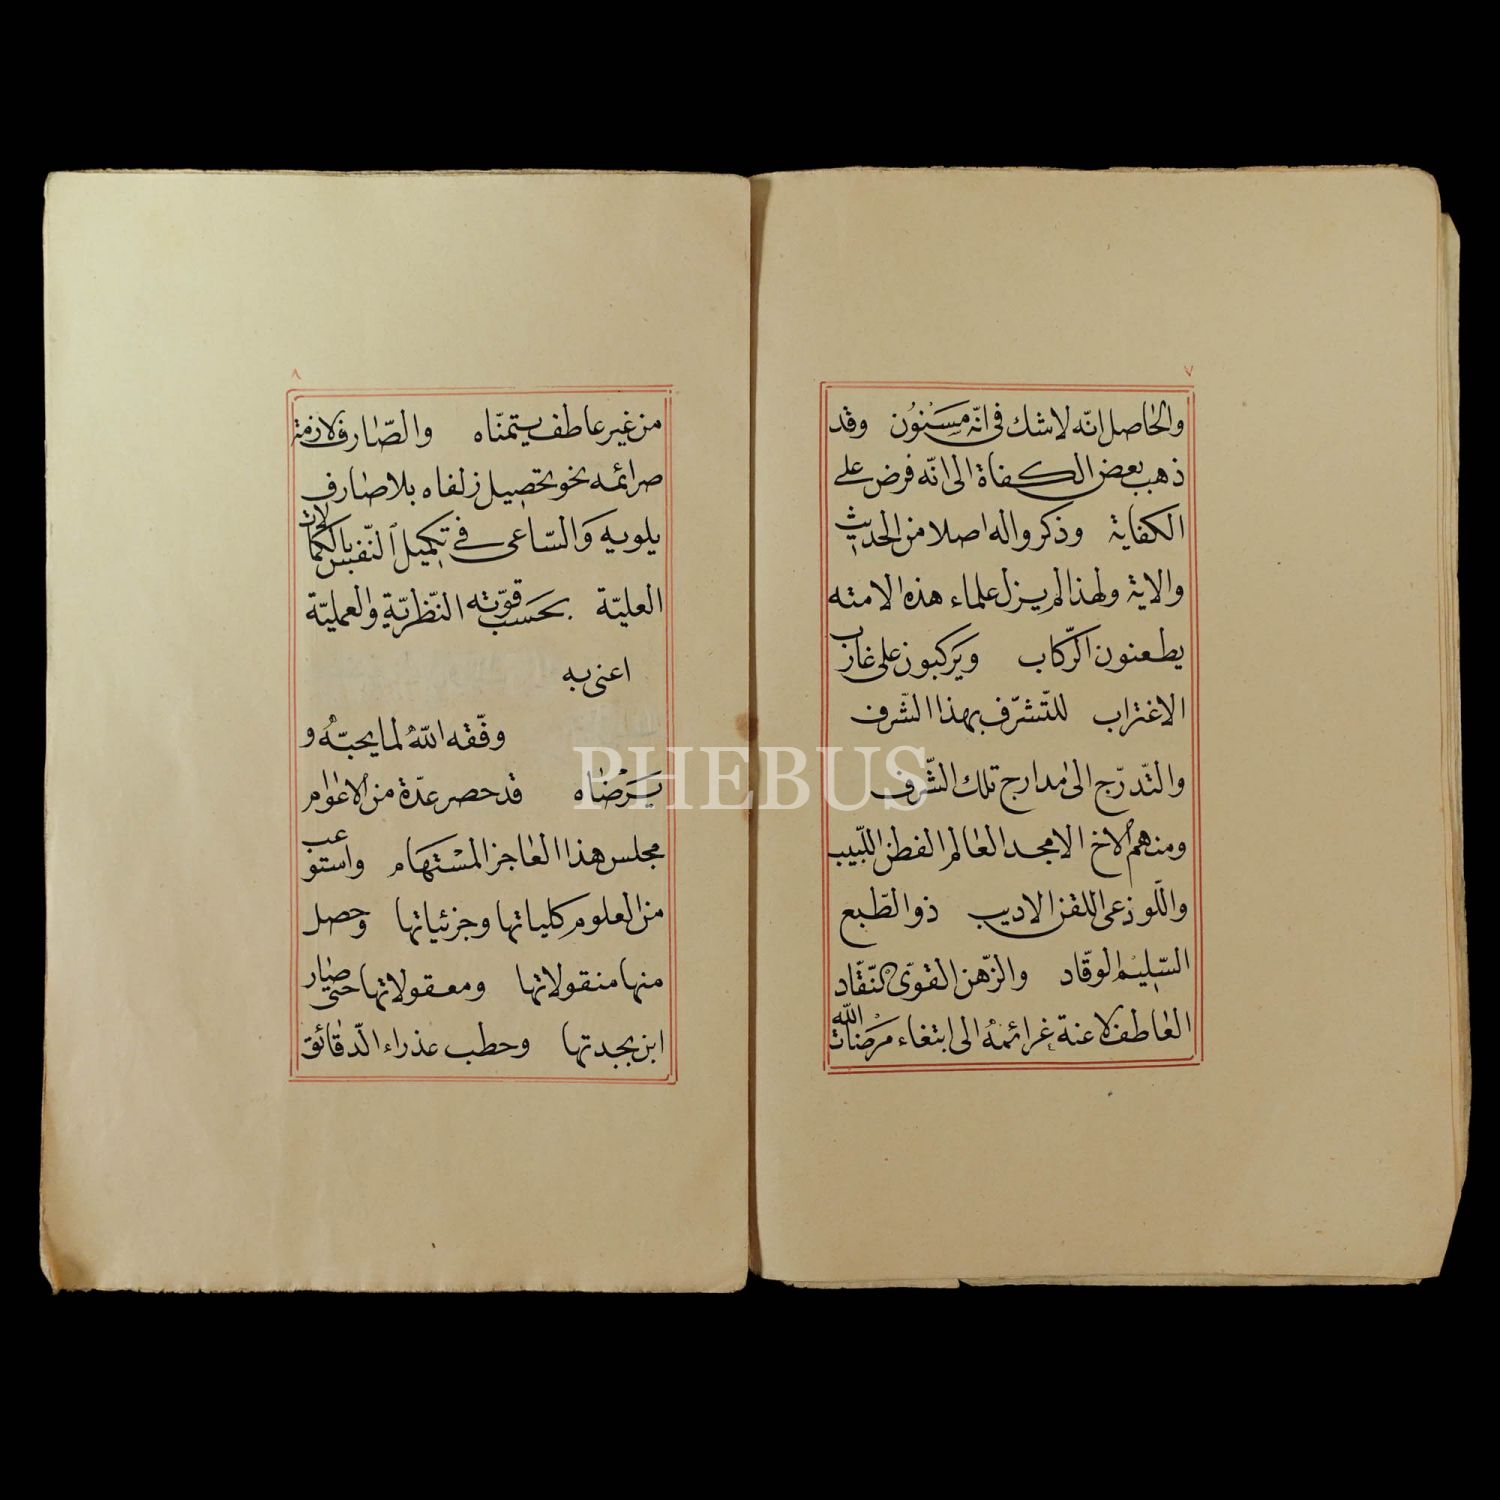 ٧
والحاصل انه لاشك فى انّه مَسْنُون وقد
ذهب بعض الكفاة الى انّه فرض على
الكفاية وذكروا له اصلا من الحديث
والاية ولهذا لم يزل علماء هذه الامته
يطعنون الرّكاب ويركبون على غارب
الاغتراب للتّشرّف بهذا الشّرف
والتّدرّج الى مدارج تلك الشّرف
ومنهم الاخ الامجد العالم الفطن اللّبيب
واللّوذعى اللقن الاديب ذو الطّبع
السّليم الوقّاد والزّهن القوىّ النّقّاد
العاطف لاعنة غرائمهُ الى ابتغاء مرضات الله
٨
من غير عاطف يتمنّاه والصّارف لازمة
صرائمه نحو تحصيل زلفاه بلا صارف
يلويه وَالسّاعى فى تكميل النّفس بالكمالات
العليّة بحَسب قوّته النّظريّة والعمليّة
اعنى به
وفّقه اللّهُ لما يحبّهُ و
يَرْضاه قد حصر عدّة من الاعوام
مجلس هذا العاجز المسْتهام واستوعب
من العلوم كلياتها وجزئياتها وحصل
منها منقولاتها ومعقولاتها حتى صار
ابن بجدتها وحطب عذراء الدّقائق
PHEBUS